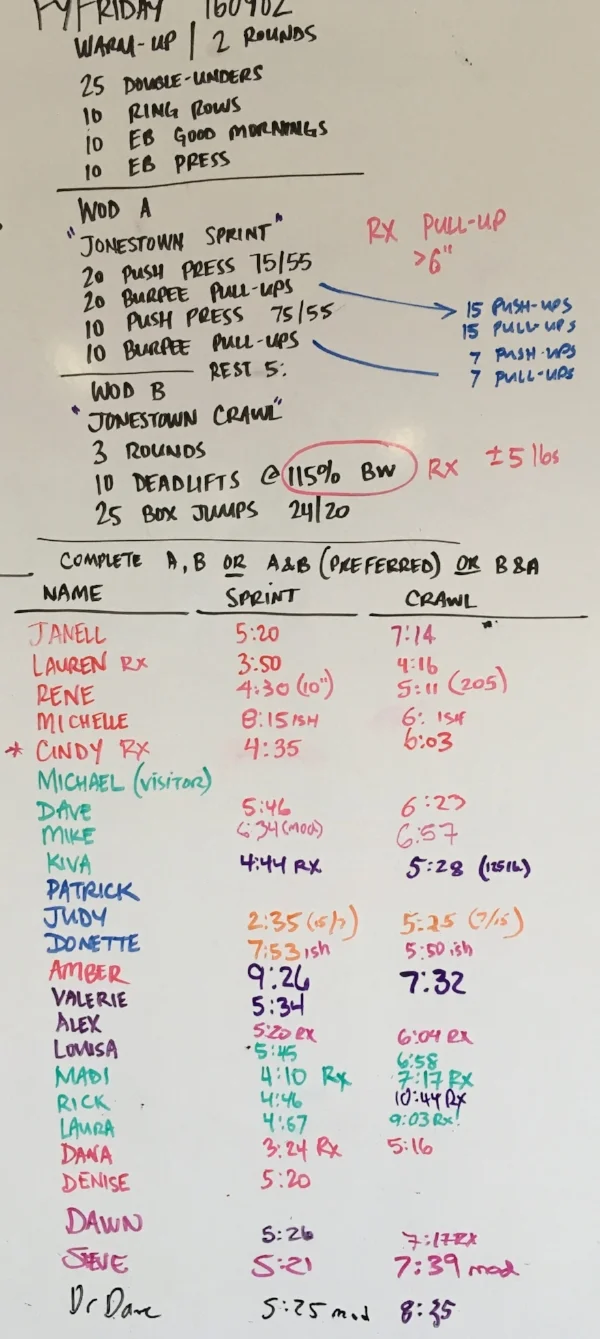 FRIDAY 160902
WARM-UP | 2 ROUNDS
25 DOUBLE-UNDERS
10 RING ROWS
10 EB GOOD MORNINGS
10 EB PRESS
WOD A
"JONESTOWN SPRINT"
RX PULL-UP
>6"
20 PUSH PRESS 75/55
20 BURPEE PULL-UPS
15 PUSH-UPS
15 PULL-UPS
10 PUSH PRESS 75/55
10 BURPEE PULL-UPS
7 PUSH-UPS
7 PULL-UPS
REST 5:
WOD B
"JONESTOWN CRAWL"
3 ROUNDS
10 DEADLIFTS @ 115% BW RX ±5 lbs
25 BOX JUMPS 24/20
COMPLETE A, B OR A&B (PREFERRED) OR B&A
NAME SPRINT CRAWL
JANELL 5:20 7:14
LAUREN RX 3:50 4:16
RENE 4:30 (10") 5:11 (205)
MICHELLE 8:15 ISH 6: ISH
* CINDY RX 4:35 6:03
MICHAEL (VISITOR)
DAVE 5:46 6:23
MIKE 6:34 (mod) 6:57
KIVA 4:44 RX 5:28 (125lb)
PATRICK
JUDY 2:35 (15/7) 5:25 (7/15)
DONETTE 7:53 ish 5:50 ish
AMBER 9:26 7:32
VALERIE 5:34
ALEX 5:20 RX 6:04 RX
LOUISA 5:45 6:58
MADI 4:10 Rx 7:17 RX
RICK 4:46 10:44 RX
LAURA 4:57 9:03 RX!
DANA 3:24 Rx 5:16
DENISE 5:20
DAWN 5:26 7:17 RX
STEVE 5:21 7:39 mod
Dr Dave 5:25 mod 8:35